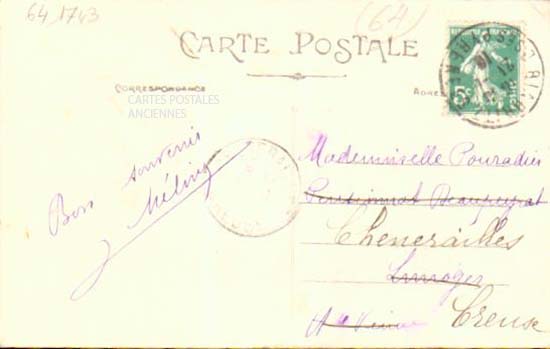 64 1743
(64)
CARTE POSTALE
CORRESPONDANCE
CARTES POSTALES
ANCIENNES
Bon souvenir
Méline
ADRES
5c
Mademoiselle Pouradier
Pensionnat Beaupeyrat
Chénérailles
Limoges
Hte Vienne
Creuse